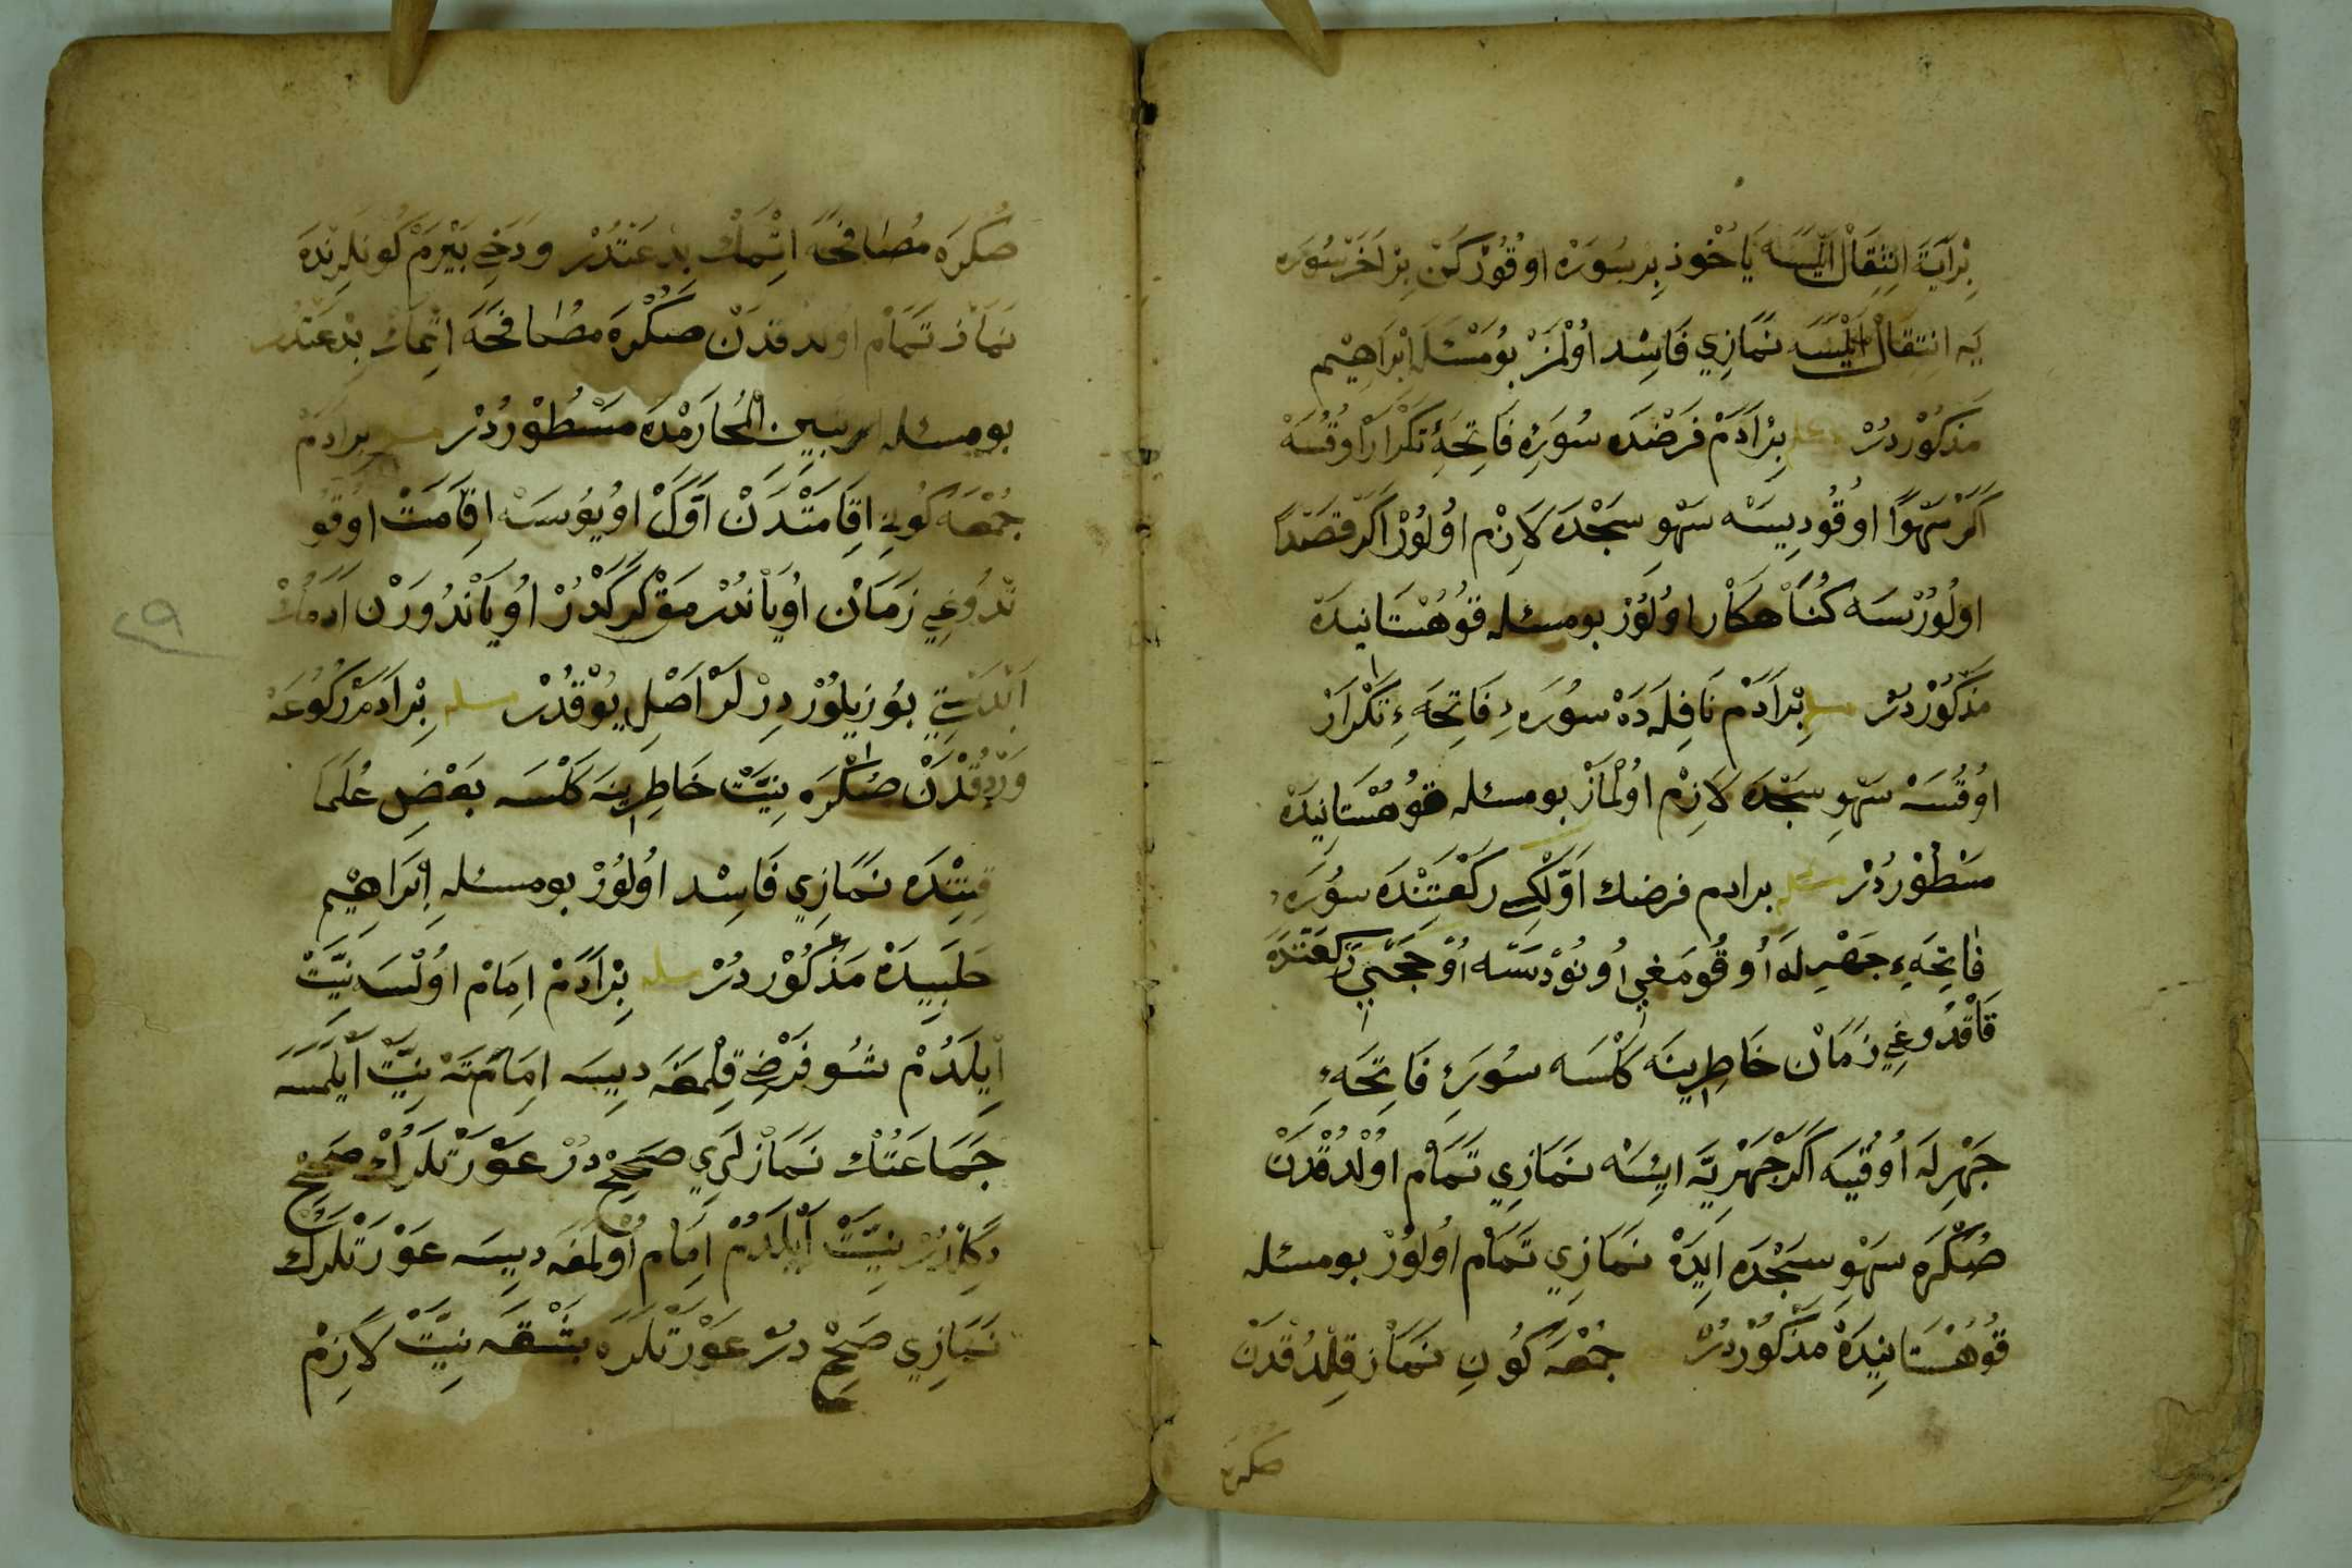 بِرْ آيَةَ اِنْتِقَالْ اَيْلَسَه يَاخُوذ بِر سُورَه اوقُورْكَنْ بِرْ اَخَرْ سُورَه
يَه اِنْتِقَالْ اَيْلَسَه نَمَازِي فَاسِد اُولْمَزْ بُو مَسْئَلَه اِبْرَاهِيم
مَذْكُوْر دُرْ بِرْ اَدَمْ فَرْضْدَه سُورَهِٔ فَاتِحَهِٔ تَكْرَارْ اوقُسَه
اَكَرْ سَهْوًا اوقُودِيسَه سَهْوِ سَجْدَه لَازِمْ اُولُورْ اَكَرْ قَصْدًا
اولُورْسَه كُنَاهكَار اوُلُورْ بو مسئله قُوهُسْتَانِيدَه
مَذْكُوْر دُرْ مسله بِرْ اَدَمْ نَافِلَه دَهْ سُورَهِٔ فَاتِحَهِٔ تَكْرَارْ
اوُقُسَه سَهْوِ سَجْدَه لَازِمْ اوُلْمَازْ بو مسئله قُوهُسْتَانِيدَه
مَسْطُوْر دُرْ مسئله بر ادم فرضك اَوَّلْكِي رَكْعَتِنْدَه سُورَهِٔ
فَاتِحَهِٔ جَهْرِلَه اُوقُومَغِي اُونُوْدسَه اُوْچُجِّي رَكْعَتْدَه
قَالْقْدُوغِي زَمَانْ خَاطِرِينَه كَلْسَه سُورَهِٔ فَاتِحَهِٔ
جَهْرِلَه اُوقُيَه اَكَرْ جَهْرِيَّه اِيسَه نَمَازِي تَمَامْ اوُلْدُقْدَنْ
صُكْرَه سَهْوِ سَجْدَه اِيدَهْ نَمَازِي تَمَامْ اوُلُورْ بو مسئله
قُوهُسْتَانِيدَه مَذْكُوْر دُرْ جُمْعَه كُونِ نَمَازْ قِلْدُقْدَنْ
صكره
صُكْرَه مُصَافَحَه اِتْمَكْ بِدْعَتْدُرْ وَدَخِي بَيْرَمْ كُونْلَرِنْدَه
نَمَازْ تَمَامْ اوُلدقدَنْ صُكْرَه مُصَافَحَه اِتْمَكْ بِدْعَتْدُر
بو مسئله تبيين الْمَحَارِمْدَه مَسْطُوْر دُرْ مسئله بر ادم
جُمْعَه كُونِي اِقَامَتْدَنْ اَوَّلْ اوُيُوسَه اِقَامَتْ اوقُو
نْدُوغِي زَمَانْ اوُيَانْدُرْمَقْ كَرَكْدُرْ اوُيَانْدُورَنْ اَدَمُكْ
اَبْدَسْتِي بُوزِيلُوْرْ دِرْلَرْ اَصْلِ يُوْقدُرْ مسله بِرْ اَدَمْ رُكُوعَه
وَارْدُقْدَنْ صُكْرَه نِيَّتْ خَاطِرِينَه كَلْسَه بَعْضِ عُلَمَا
قَتِنْدَه نَمَازِي فَاسِدْ اوُلُوْرْ بو مسئله اِبْرَاهِيْم
حَلَبِيدَهْ مَذْكُوْر دُرْ مسله بِرْ اَدَمْ اِمَامْ اوُلْسَه نِيَّتْ
اَيْلَدُمْ شُو فَرْضِ قِلْمَغَه دِيسَه اِمَامَتَه نِيَّتْ اَيْلَمَسَه
جَمَاعَتُكْ نَمَازْلَرِي صَحِيْح دُرْ عَوْرَتْلَرُكْ صَحِيْح
دَكِلْدُرْ نِيَّتْ اَيْلَدُمْ اِمَام اُوْلمَغَه دِيسَه عَوْرَتْلَرُكْ
نَمَازِي صَحِيْح دُرْ عَوْرَتْلَرَه بَشْقَه نِيَّتْ لَازِمْ